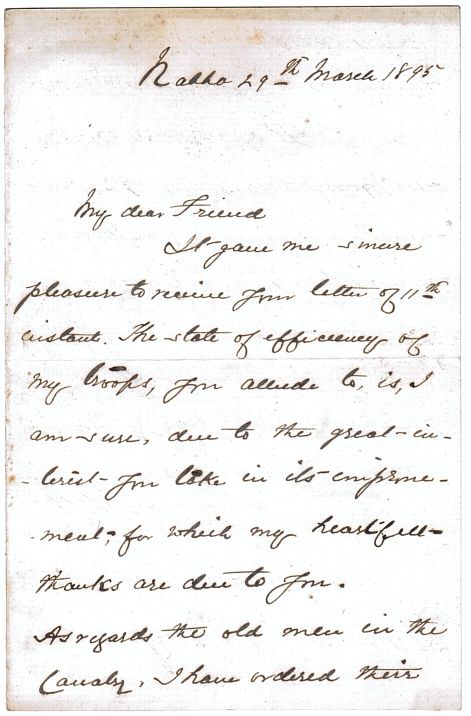 Nabha 29th March 1895
My dear Friend
It gave me sincere
pleasure to receive your letter of 11th
instant. The state of efficiency of
my troops, you allude to, is, I
am sure, due to the great in-
-terest you take in its improve-
-ment, for which my heartfelt
thanks are due to you.
As regards the old men in the
Cavalry, I have ordered their